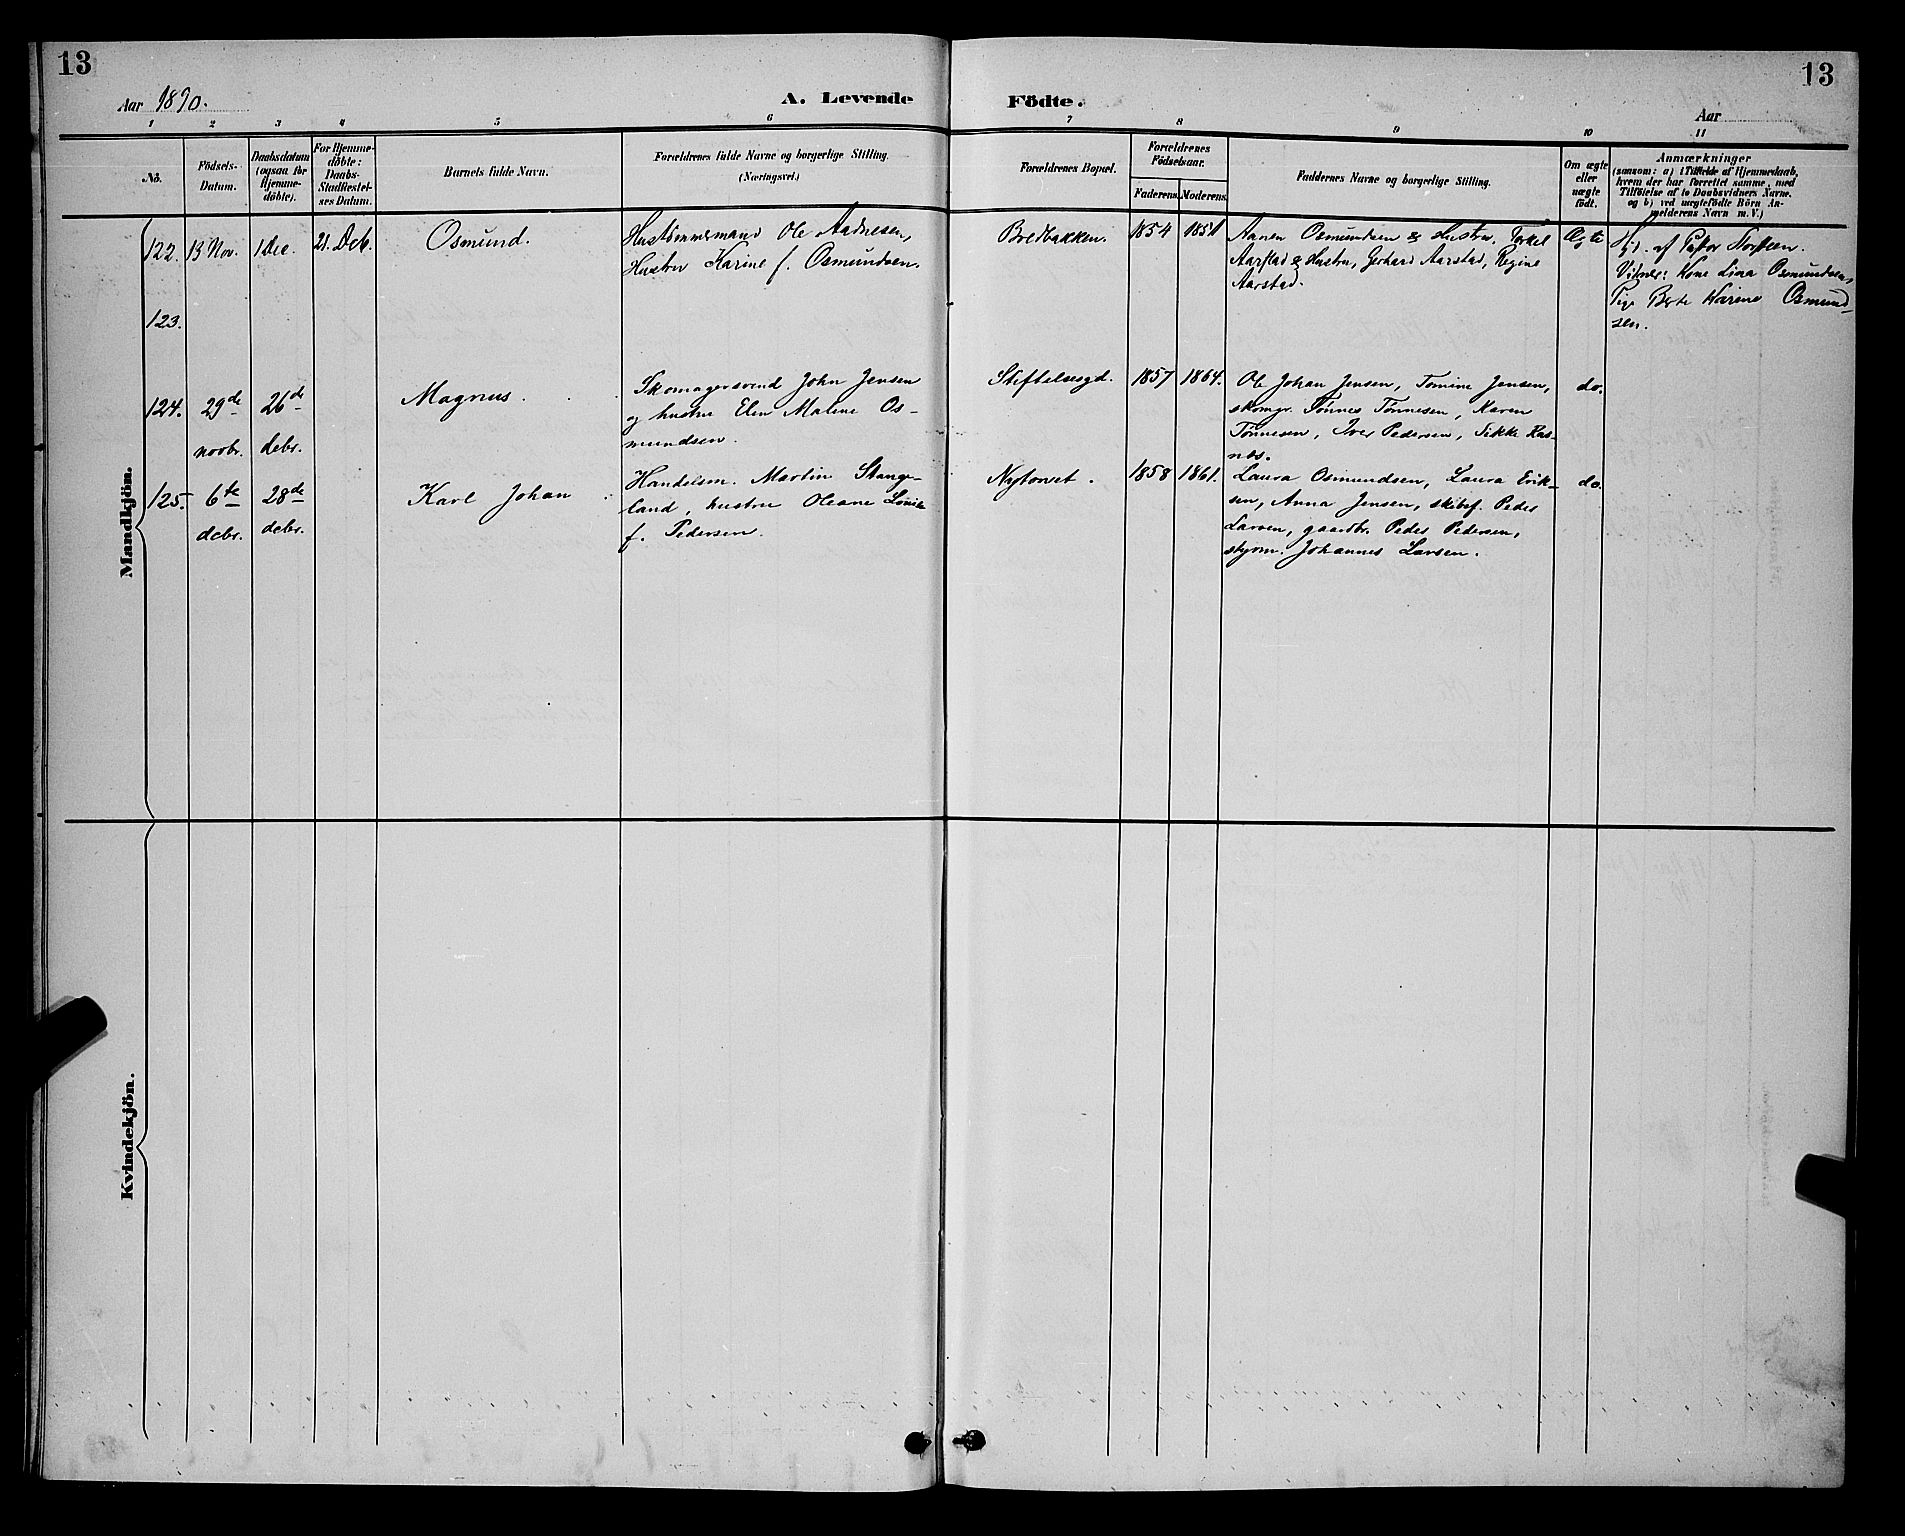 13
13
Aar 1890.
A. Levende Födte.
Aar
1 2 3 4 5 6 7 8 9 10 11
No.
Födsels-
Datum.
Daabsdatum
(ogsaa for
Hjemme-
döbte).
For Hjemme-
döbte:
Daabs-
Stadfæstel-
ses Datum.
Barnets fulde Navn.
Forældrenes fulde Navne og borgerlige Stilling.
(Næringsvei.)
Forældrenes Bopæl.
Forældrenes
Födselsaar.
Faderens. Moderens.
Faddernes Navne og borgerlige Stilling.
Om ægte
eller
uægte
födt.
Anmærkninger
(saasom: a) i Tilfælde af Hjemmedaab,
hvem der har forrettet samme, med
Tilföielse af to Daabsvidners Navne.
og b) ved uægtefödte Börn An-
melderens Navn m. V.)
Mandkjön.
122. 13 Nov. 1 Dec. 21. Deb. Osmund.
Hustømmermand Ole Aadnesen,
Hustru Karine f. Osmundsen.
Bredbakken. 1854 1851
Aanen Osmundsen & Hustru, Torkel
Aarstad & Hustru, Gerhard Aarstad, Regine
Aarstad.
Ægte
Hjd. af Pastor
Vidner: Kone Lina Osmundsen,
Pige Berte Karine Osmund-
sen.
123.
124. 29de novbr. 26de debr. Magnus.
Skomagersvend John Jensen
og hustru Elen Maline Os-
mundsen.
Stiftelsesgd. 1857 1864.
Ole Johan Jensen, Tomine Jensen,
skomgr. Tønnes Tønnesen, Karen
Tønnesen, Iver Pedersen, Sikke Ras-
nes.
do.
125. 6te debr. 28de debr. Karl Johan
Handelsm. Martin Stange-
land, hustru Oleane Lovise
f. Pedersen.
Nytorvet. 1858 1861.
Laura Osmundsen, Laura Erik-
sen, Anna Jensen, skibsf. Peder
Larsen, gaardbr. Peder Pedersen,
styrm. Johannes Larsen.
do.
Kvindekjön.